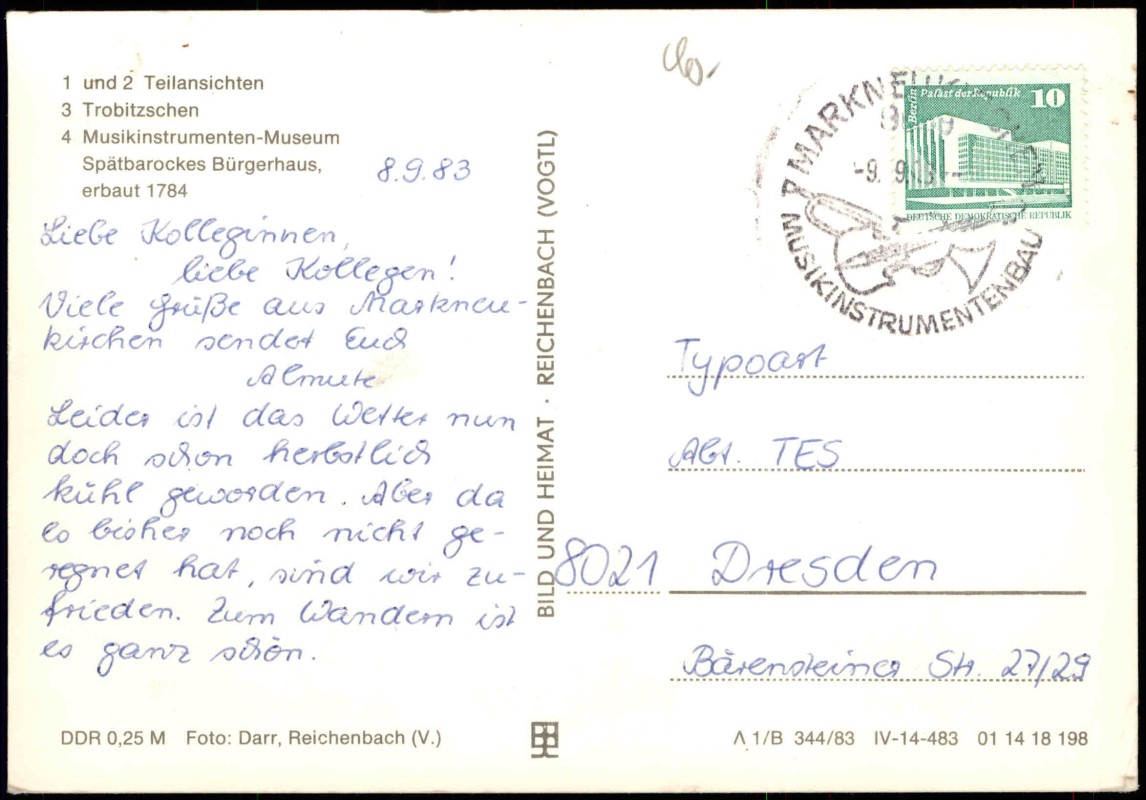 1 und 2 Teilansichten
3 Trobitzschen
4 Musikinstrumenten-Museum
Spätbarockes Bürgerhaus,
erbaut 1784
8.9.83
Liebe Kolleginnen,
liebe Kollegen!
Viele Grüße aus Markneu-
kirchen sendet Euch
Almute
Leider ist das Wetter nun
doch schon herbstlich
kühl geworden. Aber da
es bisher noch nicht ge-
regnet hat, sind wir zu-
frieden. Zum Wandern ist
es ganz schön.
DDR 0,25 M Foto: Darr, Reichenbach (V.)
BILD UND HEIMAT · REICHENBACH (VOGTL)
MUSIKINSTRUMENTENBAU
-9. 9.
Berlin Palast der Republik 10
DEUTSCHE DEMOKRATISCHE REPUBLIK
Typoart
Abt. TES
8021 Dresden
Bärensteiner Str. 27/29
A 1/B 344/83 IV-14-483 01 14 18 198